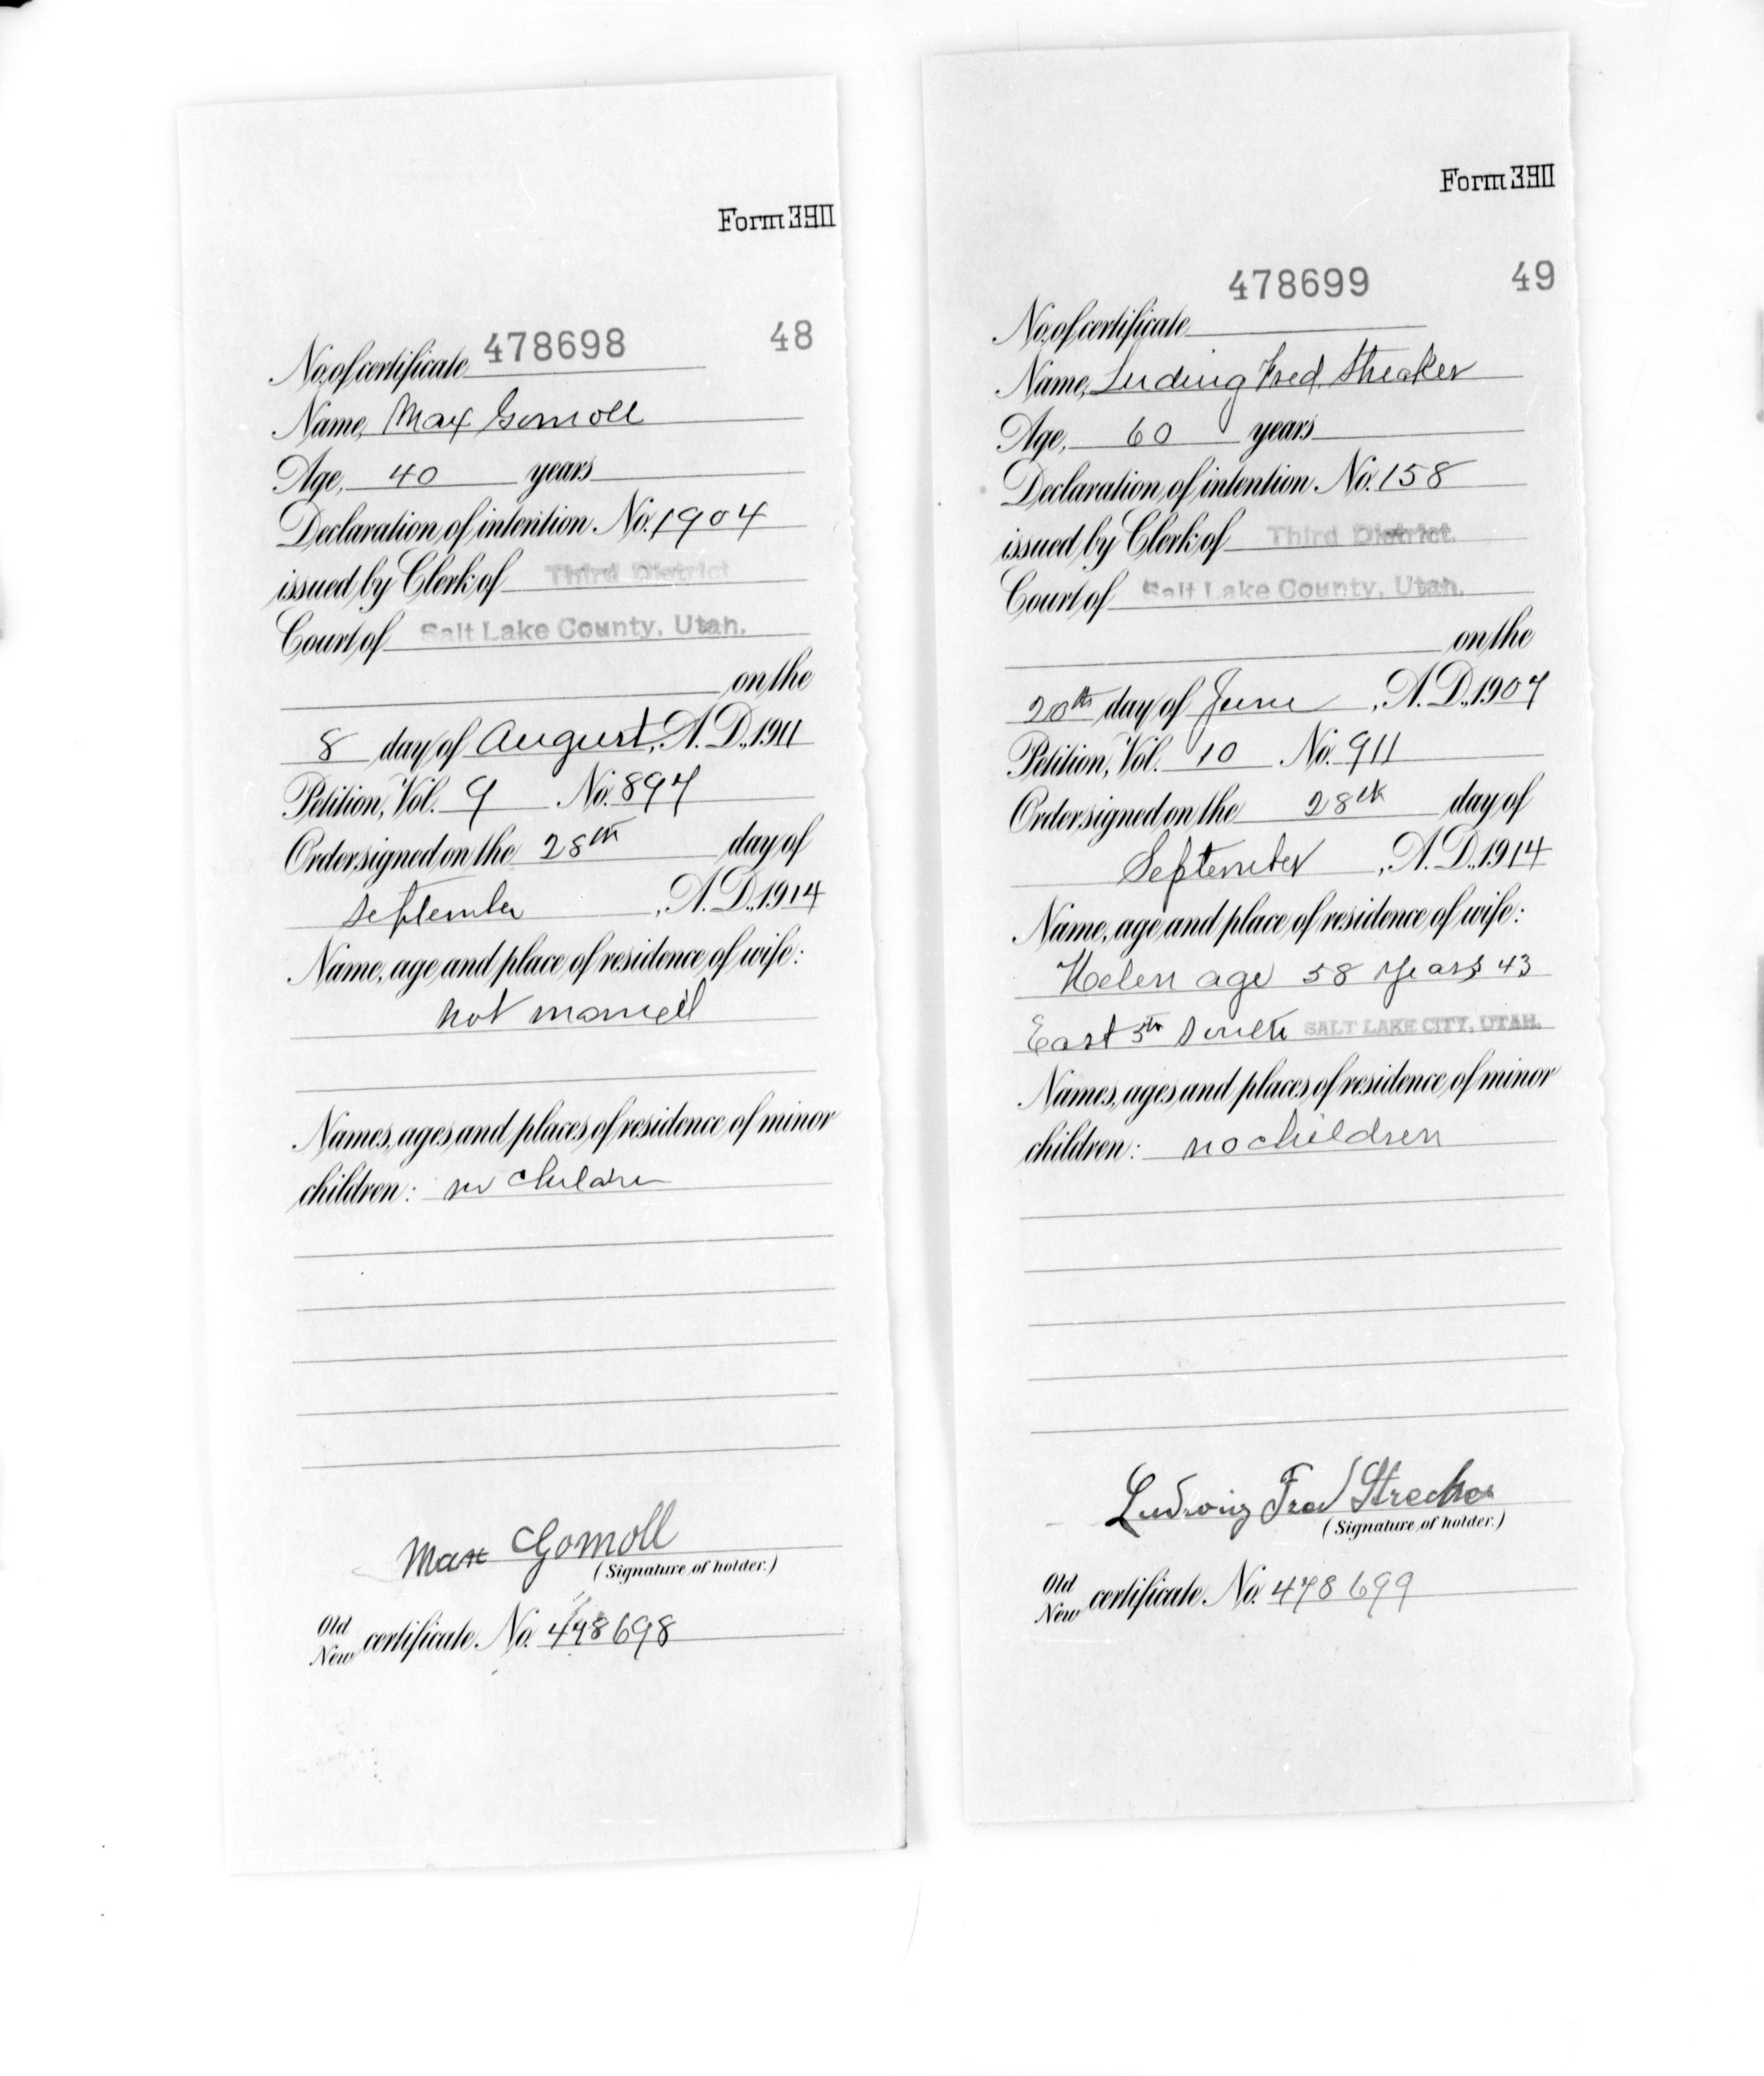 Form 390
No. of certificate 478698 48
Name, Max Gomoll
Age, 40 years
Declaration of intention No. 1904
issued by Clerk of Third District
Court of Salt Lake County, Utah.
on the
8 day of August, A. D., 1911
Petition, Vol. 9 No. 897
Order signed on the 28th day of
September, A. D., 1914
Name, age and place of residence of wife:
not married
Names, ages and places of residence of minor
children: no children
Max Gomoll
(Signature of holder.)
Old
New certificate No. 478698
Form 390
478699 49
No. of certificate
Name, Ludwig Fred Streaker
Age, 60 years
Declaration of intention No. 158
issued by Clerk of Third District.
Court of Salt Lake County, Utah.
on the
20th day of June, A. D., 1907
Petition, Vol. 10 No. 911
Order signed on the 28th day of
September, A. D., 1914
Name, age and place of residence of wife:
Helen age 58 years 43
East 5th South SALT LAKE CITY, UTAH.
Names, ages and places of residence of minor
children: no children
Ludwig Fred Strecker
(Signature of holder.)
Old
New certificate No. 478699